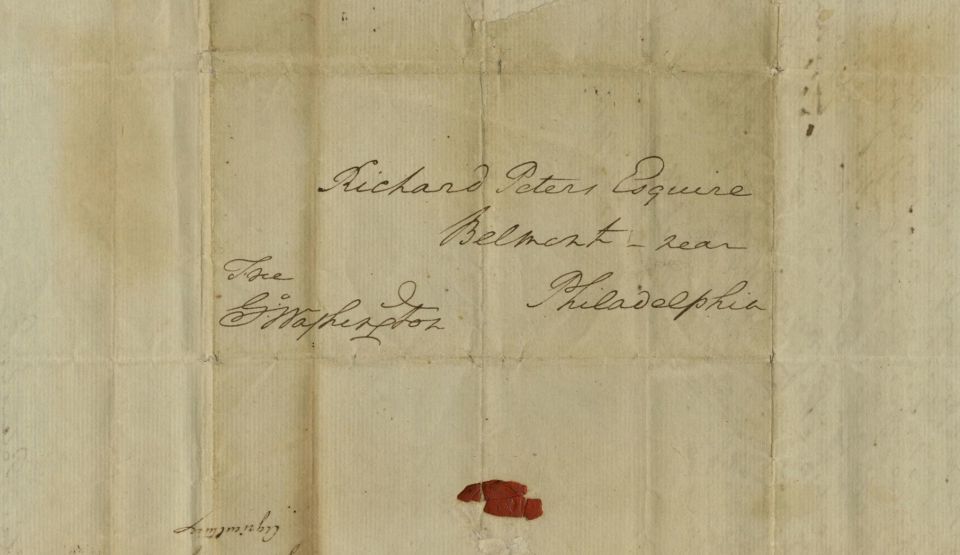 Richard Peters Esquire
Belmont – near
Philadelphia
Free
Go: Washington
Agriculture